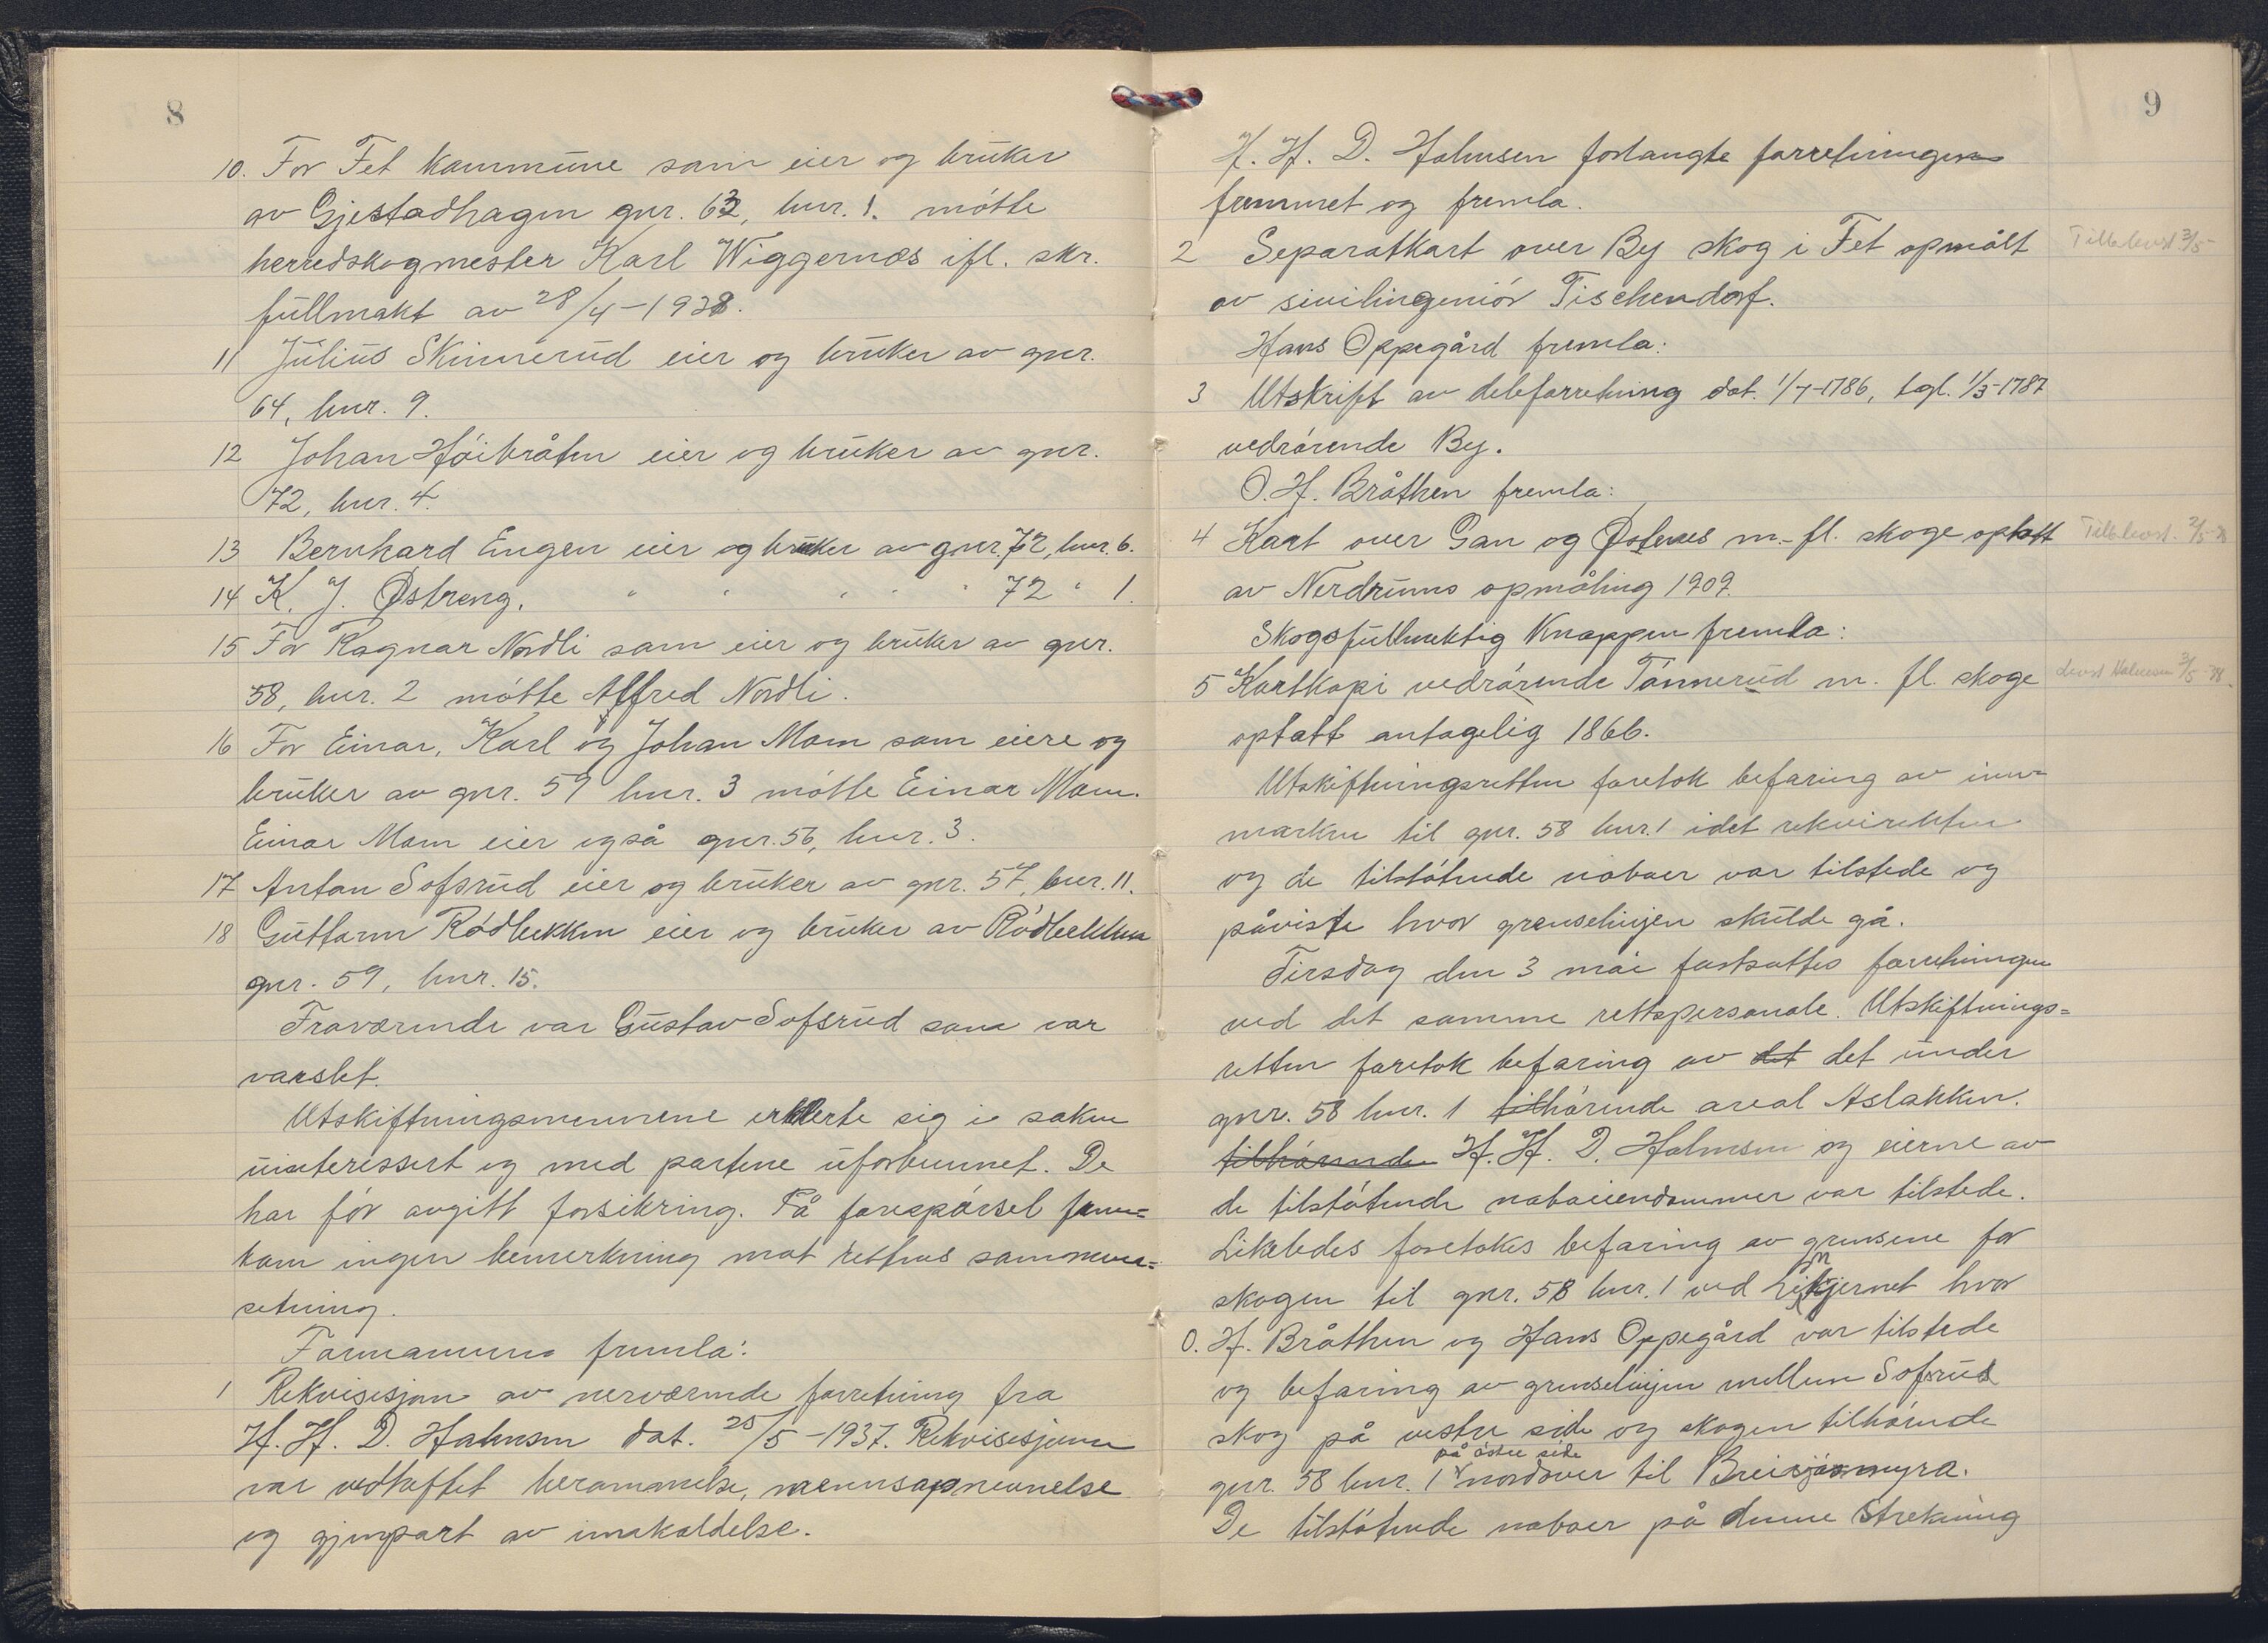 8
10. For Fet kommune som eier og bruker
av Gjestadhagen gnr. 63, bnr. 1. møtte
herredskogmester Karl Wiggernæs ifl. skr.
fullmakt av 28/4-1938.
11 Julius Skinnerud eier og bruker av gnr.
64, bnr. 9.
12 Johan Høibråten eier og bruker av gnr.
72, bnr. 4.
13 Bernhard Engen eier og bruker av gnr. 72, bnr. 6.
14 K. J. Østreng. " " " " " 72 " 1.
15 For Ragnar Nordli som eier og bruker av gnr.
58, bnr. 2 møtte Alfred Nordli.
16 For Einar, Karl og Johan Mam som eiere og
bruker av gnr. 59 bnr. 3 møtte Einar Mam.
Einar Mam eier også gnr. 56, bnr. 3.
17 Anton Sofsrud eier og bruker av gnr. 57, bnr. 11.
18 Guttorm Rødbekken eier og bruker av Rødbekken
gnr. 59, bnr. 15.
Fraværende var Gustav Sofsrud som var
varslet.
Utskiftningsmennene erklerte sig i saken
uinteressert og med partene uforbunnet. De
har før avgitt forsikring. På forespørsel frem=
kom ingen bemerkning mot rettens sammen=
setning.
Formannen fremla:
1 Rekvisisjon av nerværende forretning fra
H. H. D. Holmsen dat. 25/5-1937. Rekvisisjonen
var vedheftet berammelse, mennsopnevnelse
og gjenpart av innkaldelse.
9
H. H. D. Holmsen forlangte forretningen
fremmet og fremla.
2 Separatkart over By skog i Fet opmålt
Tilbakelevert 3/5-
av sivilingeniør Tischendorf.
Hans Oppegård fremla:
3 Utskrift av deleforretning dat. 1/7-1786, tgl. 1/3-1787
vedrørende By.
O. H. Bråthen fremla:
4 Kart over Gan og Østenes m. fl. skoge optatt
av Nerdrums opmåling 1909.
Skogsfullmektig Knappen fremla:
5 Kartkopi vedrørende Tønnerud m. fl. skoge
levert Holmsen 3/5-38.
optatt antagelig 1866.
Utskiftningsretten foretok befaring av inn-
marken til gnr. 58 bnr. 1 idet rekvirenten
og de tilstøtende naboer var tilstede og
påviste hvor grenselinjen skulde gå.
Tirsdag den 3 mai fortsattes forretningen
ved det samme rettspersonale. Utskiftnings=
retten foretok befaring av det det under
gnr. 58 bnr. 1 tilhørende areal Aslakken.
tilhørende H. H. D. Holmsen og eierne av
de tilstøtende naboeiendommer var tilstede.
Likeledes foretokes befaring av grensene for
skogen til gnr. 58 bnr. 1 ved hvor
O. H. Bråthen og Hans Oppegård var tilstede
og befaring av grenselinjen mellem Sofsrud
skog på vestre side og skogen tilhørende
på østre side
gnr. 58 bnr. 1 nordover til Breisjøsmyra.
De tilstøtende naboer på denne strekning